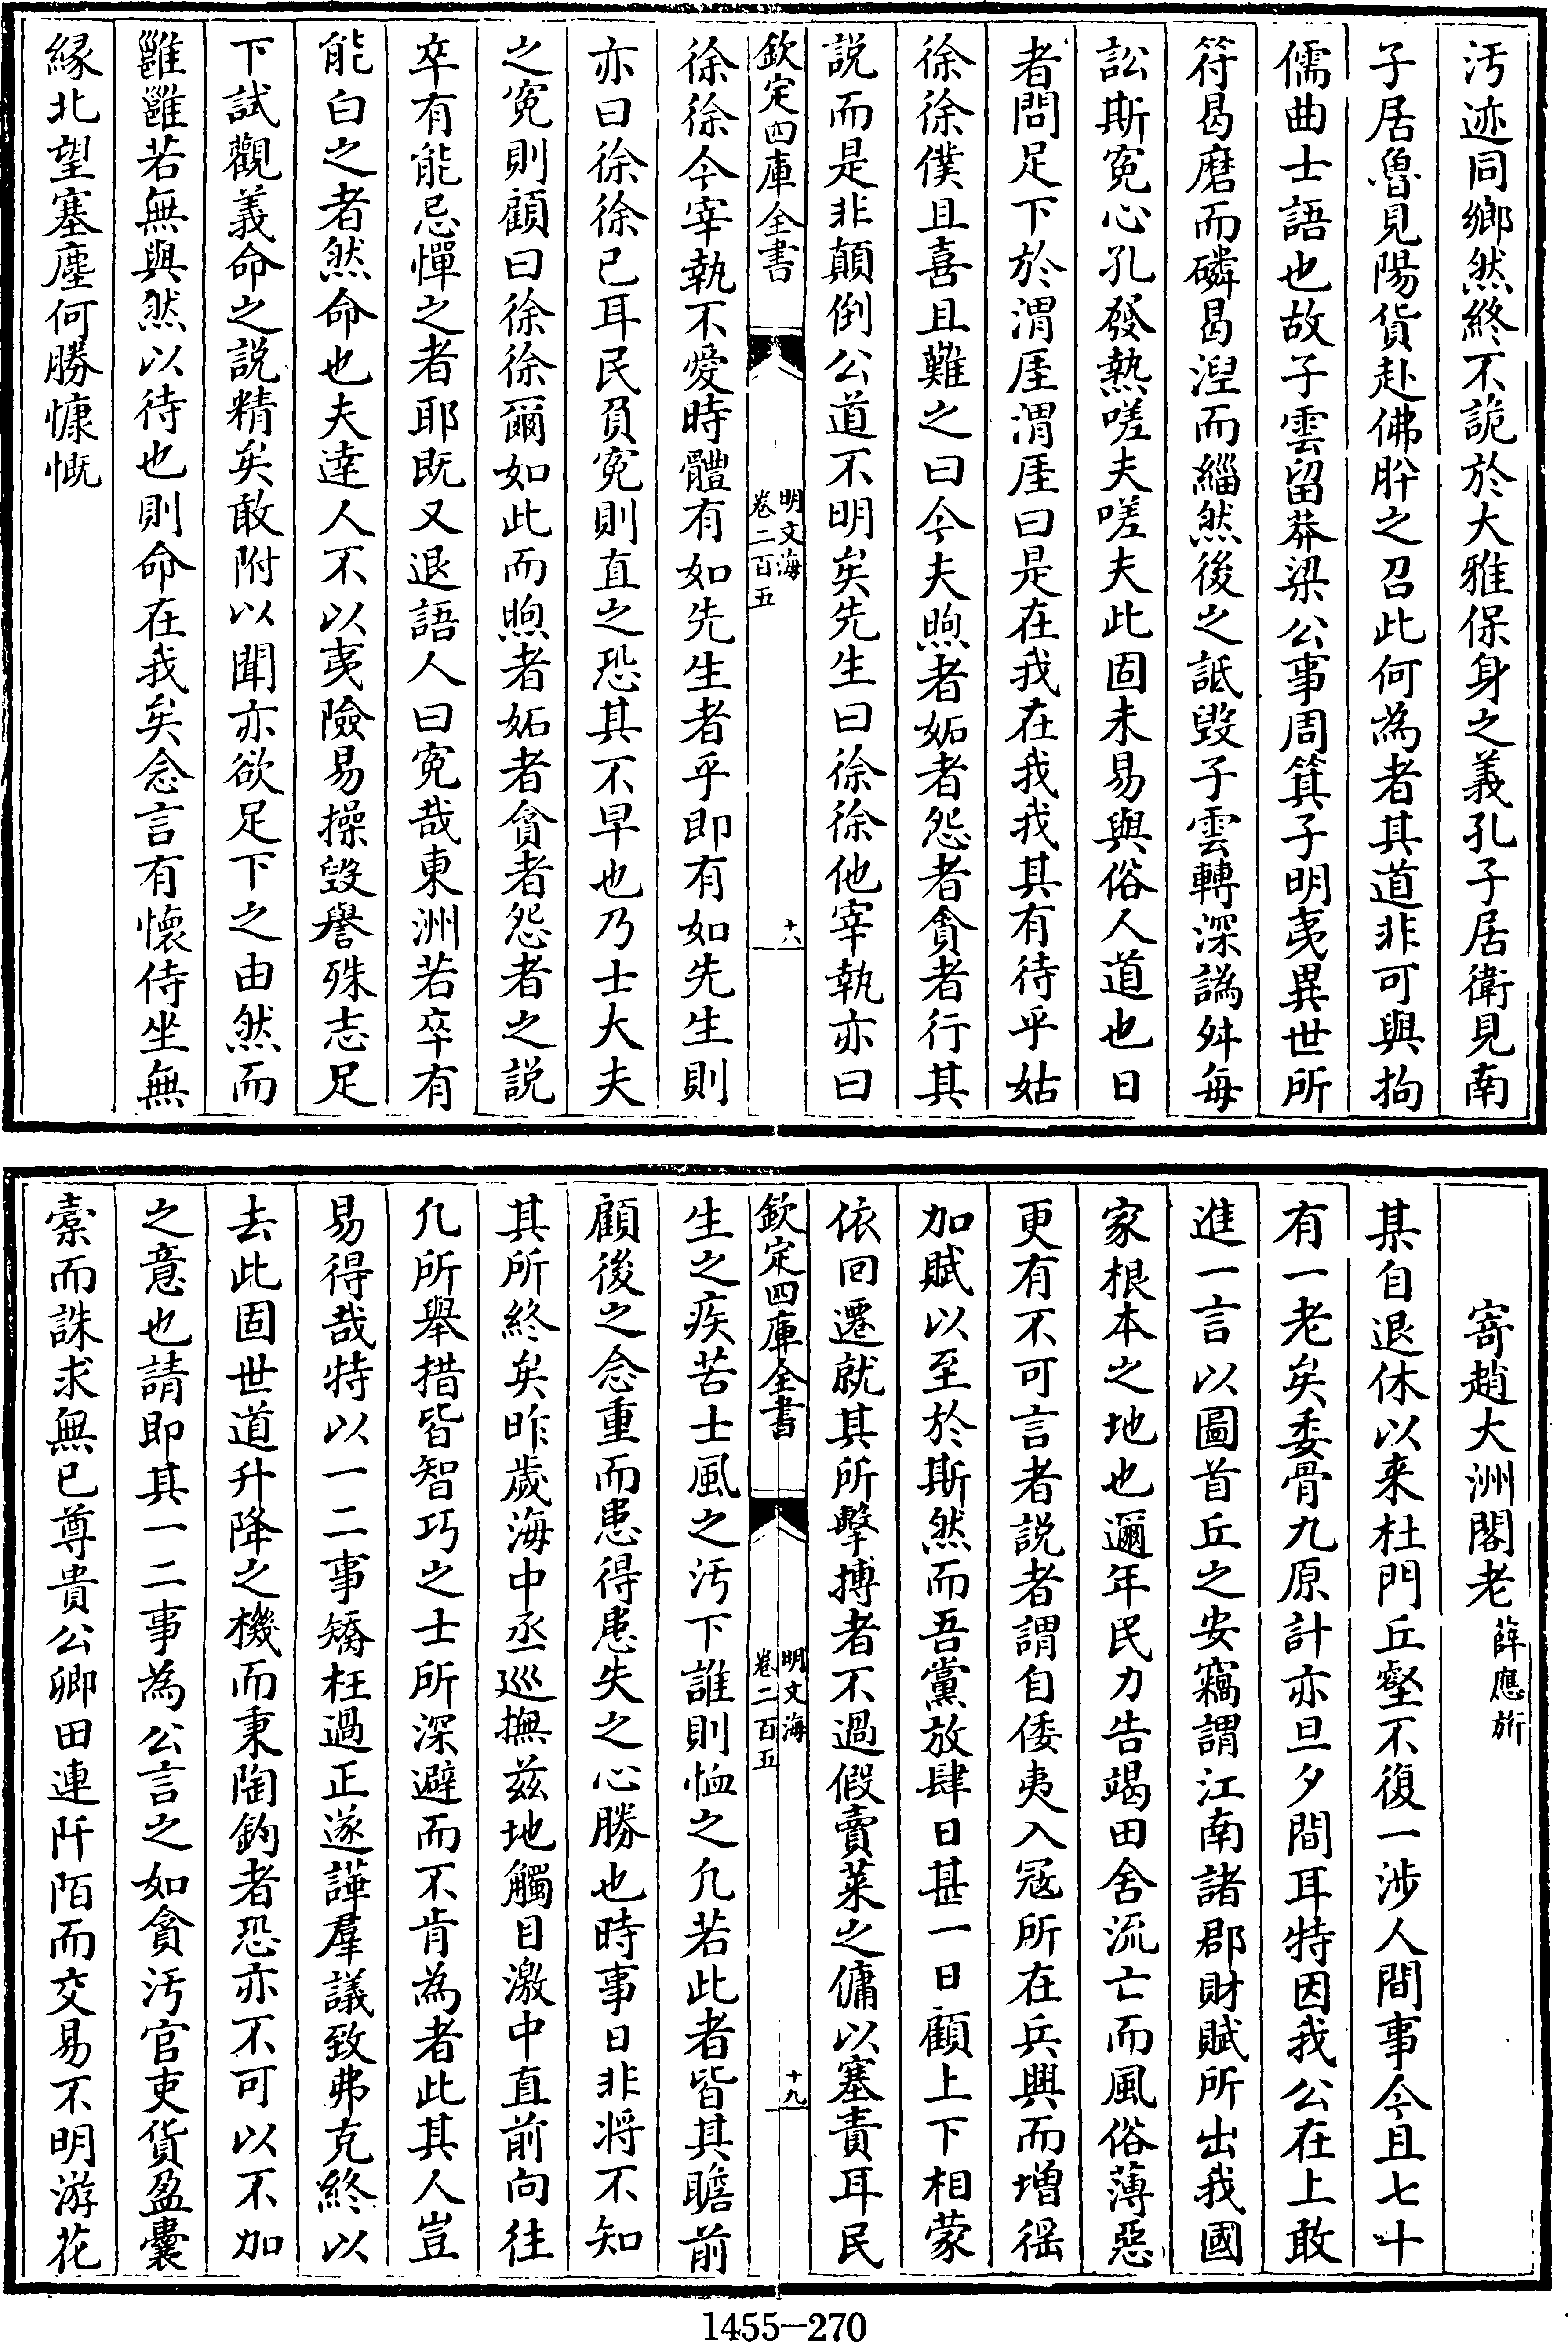 汚迹同鄉然終不詭於大雅保身之義孔子居衛見南
子居魯見陽貨赴佛肸之召此何為者其道非可與拘
儒曲士語也故子雲留莽梁公事周箕子明夷異世所
符曷磨而磷曷湼而緇然後之詆毁子雲轉深譌舛每
訟斯寃心孔發熱嗟夫嗟夫此固未易與俗人道也日
者問足下於渭厓渭厓曰是在我在我我其有待乎姑
徐徐僕且喜且難之曰今夫煦者妬者怨者貪者行其
説而是非顛倒公道不明矣先生曰徐徐他宰執亦曰
欽定四庫全書
明文海
卷二百五
十八
徐徐今宰執不愛時體有如先生者乎即有如先生則
亦曰徐徐已耳民負寃則直之恐其不早也乃士大夫
之寃則顧曰徐徐爾如此而煦者妬者貪者怨者之説
卒有能忌憚之者耶既又退語人曰寃哉東洲若卒有
能白之者然命也夫逹人不以夷險易操毁譽殊志足
下試觀義命之説精矣敢附以聞亦欲足下之由然而
雝雝若無與然以待也則命在我矣念言有懷侍坐無
緣北望塞塵何勝慷慨
寄趙大洲閣老 薛應旂
某自退休以来杜門丘壑不復一涉人間事今且七十
有一老矣委骨九原計亦旦夕間耳特因我公在上敢
進一言以圖首丘之安竊謂江南諸郡財賦所出我國
家根本之地也邇年民力告竭田舍流亡而風俗薄惡
更有不可言者説者謂自倭夷入冦所在兵興而增徭
加賦以至於斯然而吾黨放肆日甚一日顧上下相蒙
依回遷就其所擊搏者不過假賣菜之傭以塞責耳民
欽定四庫全書
明文海
卷二百五
十九
生之疾苦士風之汚下誰則恤之凡若此者皆其瞻前
顧後之念重而患得患失之心勝也時事日非將不知
其所終矣昨歲海中丞廵撫兹地觸目激中直前向往
凡所舉措皆智巧之士所深避而不肯為者此其人豈
易得哉特以一二事矯枉過正遂譁羣議致弗克終以
去此固世道升降之機而秉陶鈞者恐亦不可以不加
之意也請即其一二事為公言之如貪汚官吏貨盈囊
橐而誅求無已尊貴公卿田連阡陌而交易不明游花
1455—270